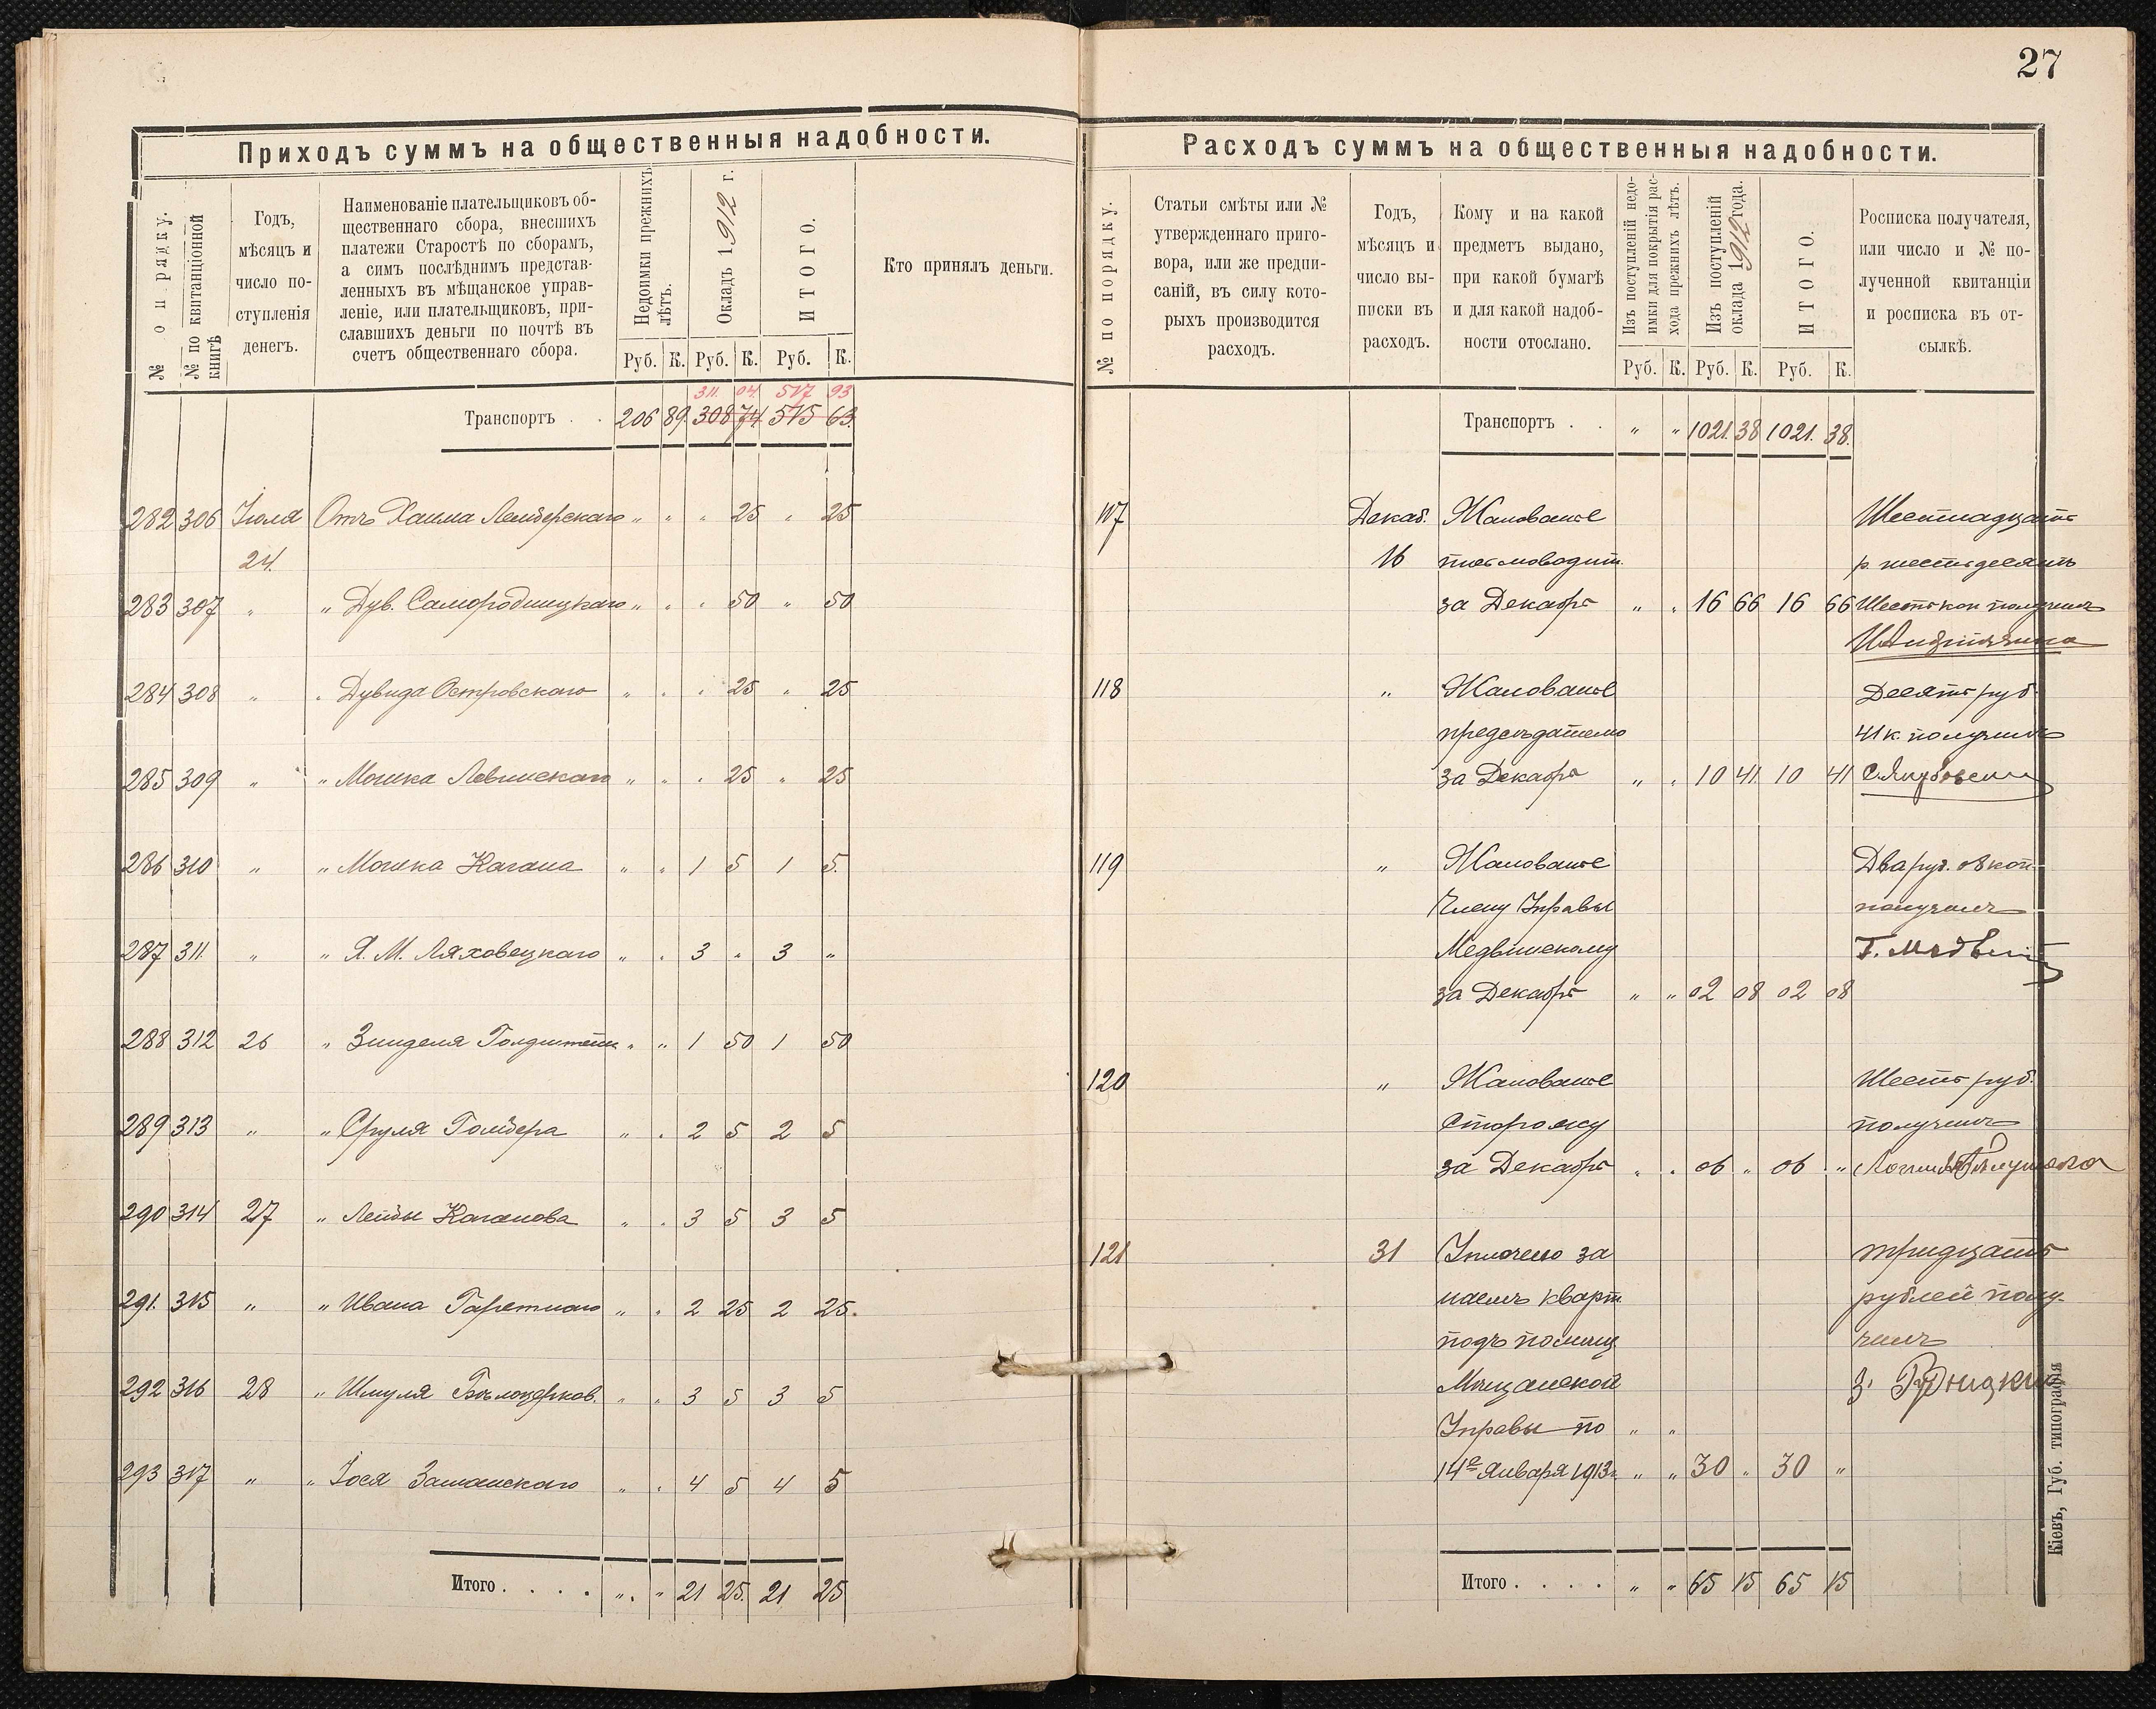 27
Приходъ суммъ на общественныя надобности.
№ по порядку.
№ по квитанціонной книгѣ
Годъ, мѣсяцъ и число поступленія денегъ.
Наименованіе плательщиковъ об-
щественнаго сбора, внесшихъ
платежи Старостѣ по сборамъ,
а симъ послѣднимъ представ-
ленныхъ въ мѣщанское управ-
леніе, или плательщиковъ, при-
славшихъ деньги по почтѣ въ
счетъ общественнаго сбора.
Недоимки прежнихъ лѣтъ.
Окладъ 1912 г.
ИТОГО.
Кто принялъ деньги.
Руб. К. Руб. К. Руб. К.
311. 04. 517 93
Транспортъ . . 206 89. 308 74 515 63.
282 306 Іюля Отъ Хаима Лемберскаго " " " 25 " 25
24.
283 307 " " Дув. Самородницкаго " " " 50 " 50
284 308 " " Дувида Островскаго " " " 25 " 25
285 309 " " Мошка Левинскаго " " " 25 " 25
286 310 " " Мошка Кагана " " 1 5 1 5.
287 311. " " Я. М. Ляховецкаго " " 3 " 3 "
288 312 26 " Зинделя Голдштейн. " " 1 50 1 50
289 313 " " Сруля Голбера " " 2 5 2 5
290 314 27 " Лейбы Каганова " " 3 5 3 5
291. 315 " " Ивана Гаретнаго " " 2 25 2 25.
292 316 28 " Шмуля Бѣлоцерков. " " 3 5 3 5
293 317 " " Іося Заманскаго " " 4 5 4 5
Итого . . . . " " 21 25. 21 25
Расходъ суммъ на общественныя надобности.
№ по порядку.
Статьи смѣты или №
утвержденнаго приго-
вора, или же предпи-
саній, въ силу кото-
рыхъ производится
расходъ.
Годъ,
мѣсяцъ и
число вы-
писки въ
расходъ.
Кому и на какой
предметъ выдано,
при какой бумагѣ
и для какой надоб-
ности отослано.
Изъ поступленій недо-
имки для покрытія рас-
хода прежнихъ лѣтъ.
Изъ поступленій
оклада 1912 года.
ИТОГО.
Росписка получателя,
или число и № по-
лученной квитанціи
и росписка въ от-
сылкѣ.
Руб. К. Руб. К. Руб. К.
Транспортъ . . " " 1021. 38 1021. 38.
117 Декаб. Жалованье Шестнадцать
16 письмоводит. р. шестьдесять
за Декабрь " " 16 66 16 66 Шесть коп получилъ
118 " Жалованье Десять руб.
предсѣдателю 41 к. получилъ
за Декабрь " " 10 41. 10 41
119 " Жалованье Два руб. 08 коп.
Члену Управы получилъ
Медвинскому Г. Медвин
за Декабрь " " 02 08 02 08
120 " Жалованье Шесть руб.
Сторожу получилъ
за Декабрь " " 06 " 06 "
121 31 Уплочено за тридцать
наемъ кварт. рублей полу-
подъ помѣщ. чилъ
Мѣщанской З. Рудницкий
Управы по " "
14е Января 1913г. " " 30 " 30 "
Итого . . . . " " 65 15 65 15
Кіевъ, Губ. типографія